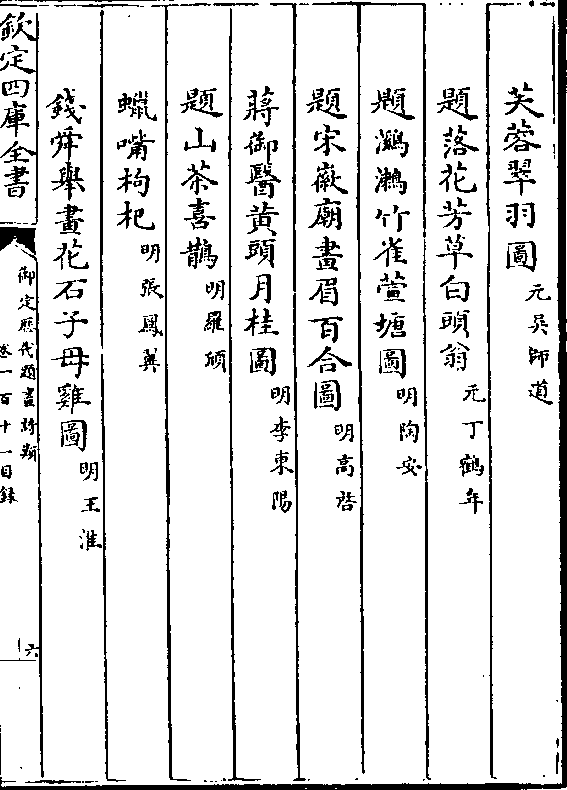 芙蓉翠羽圖 元吳師道
題落花芳草白頭翁 元丁鶴年
題鸂鶒竹雀萱塘圖 明陶安
題宋徽廟畫眉百合圖 明高啓
蔣御醫黃頭月桂圖 明李東陽
題山茶喜鵲 明羅頎
蠟嘴枸杞 明張鳳翼
錢舜舉畫花石子母雞圖 明王淮
欽定四庫全書
御定歷代題畫詩類
卷一百十一目錄
六